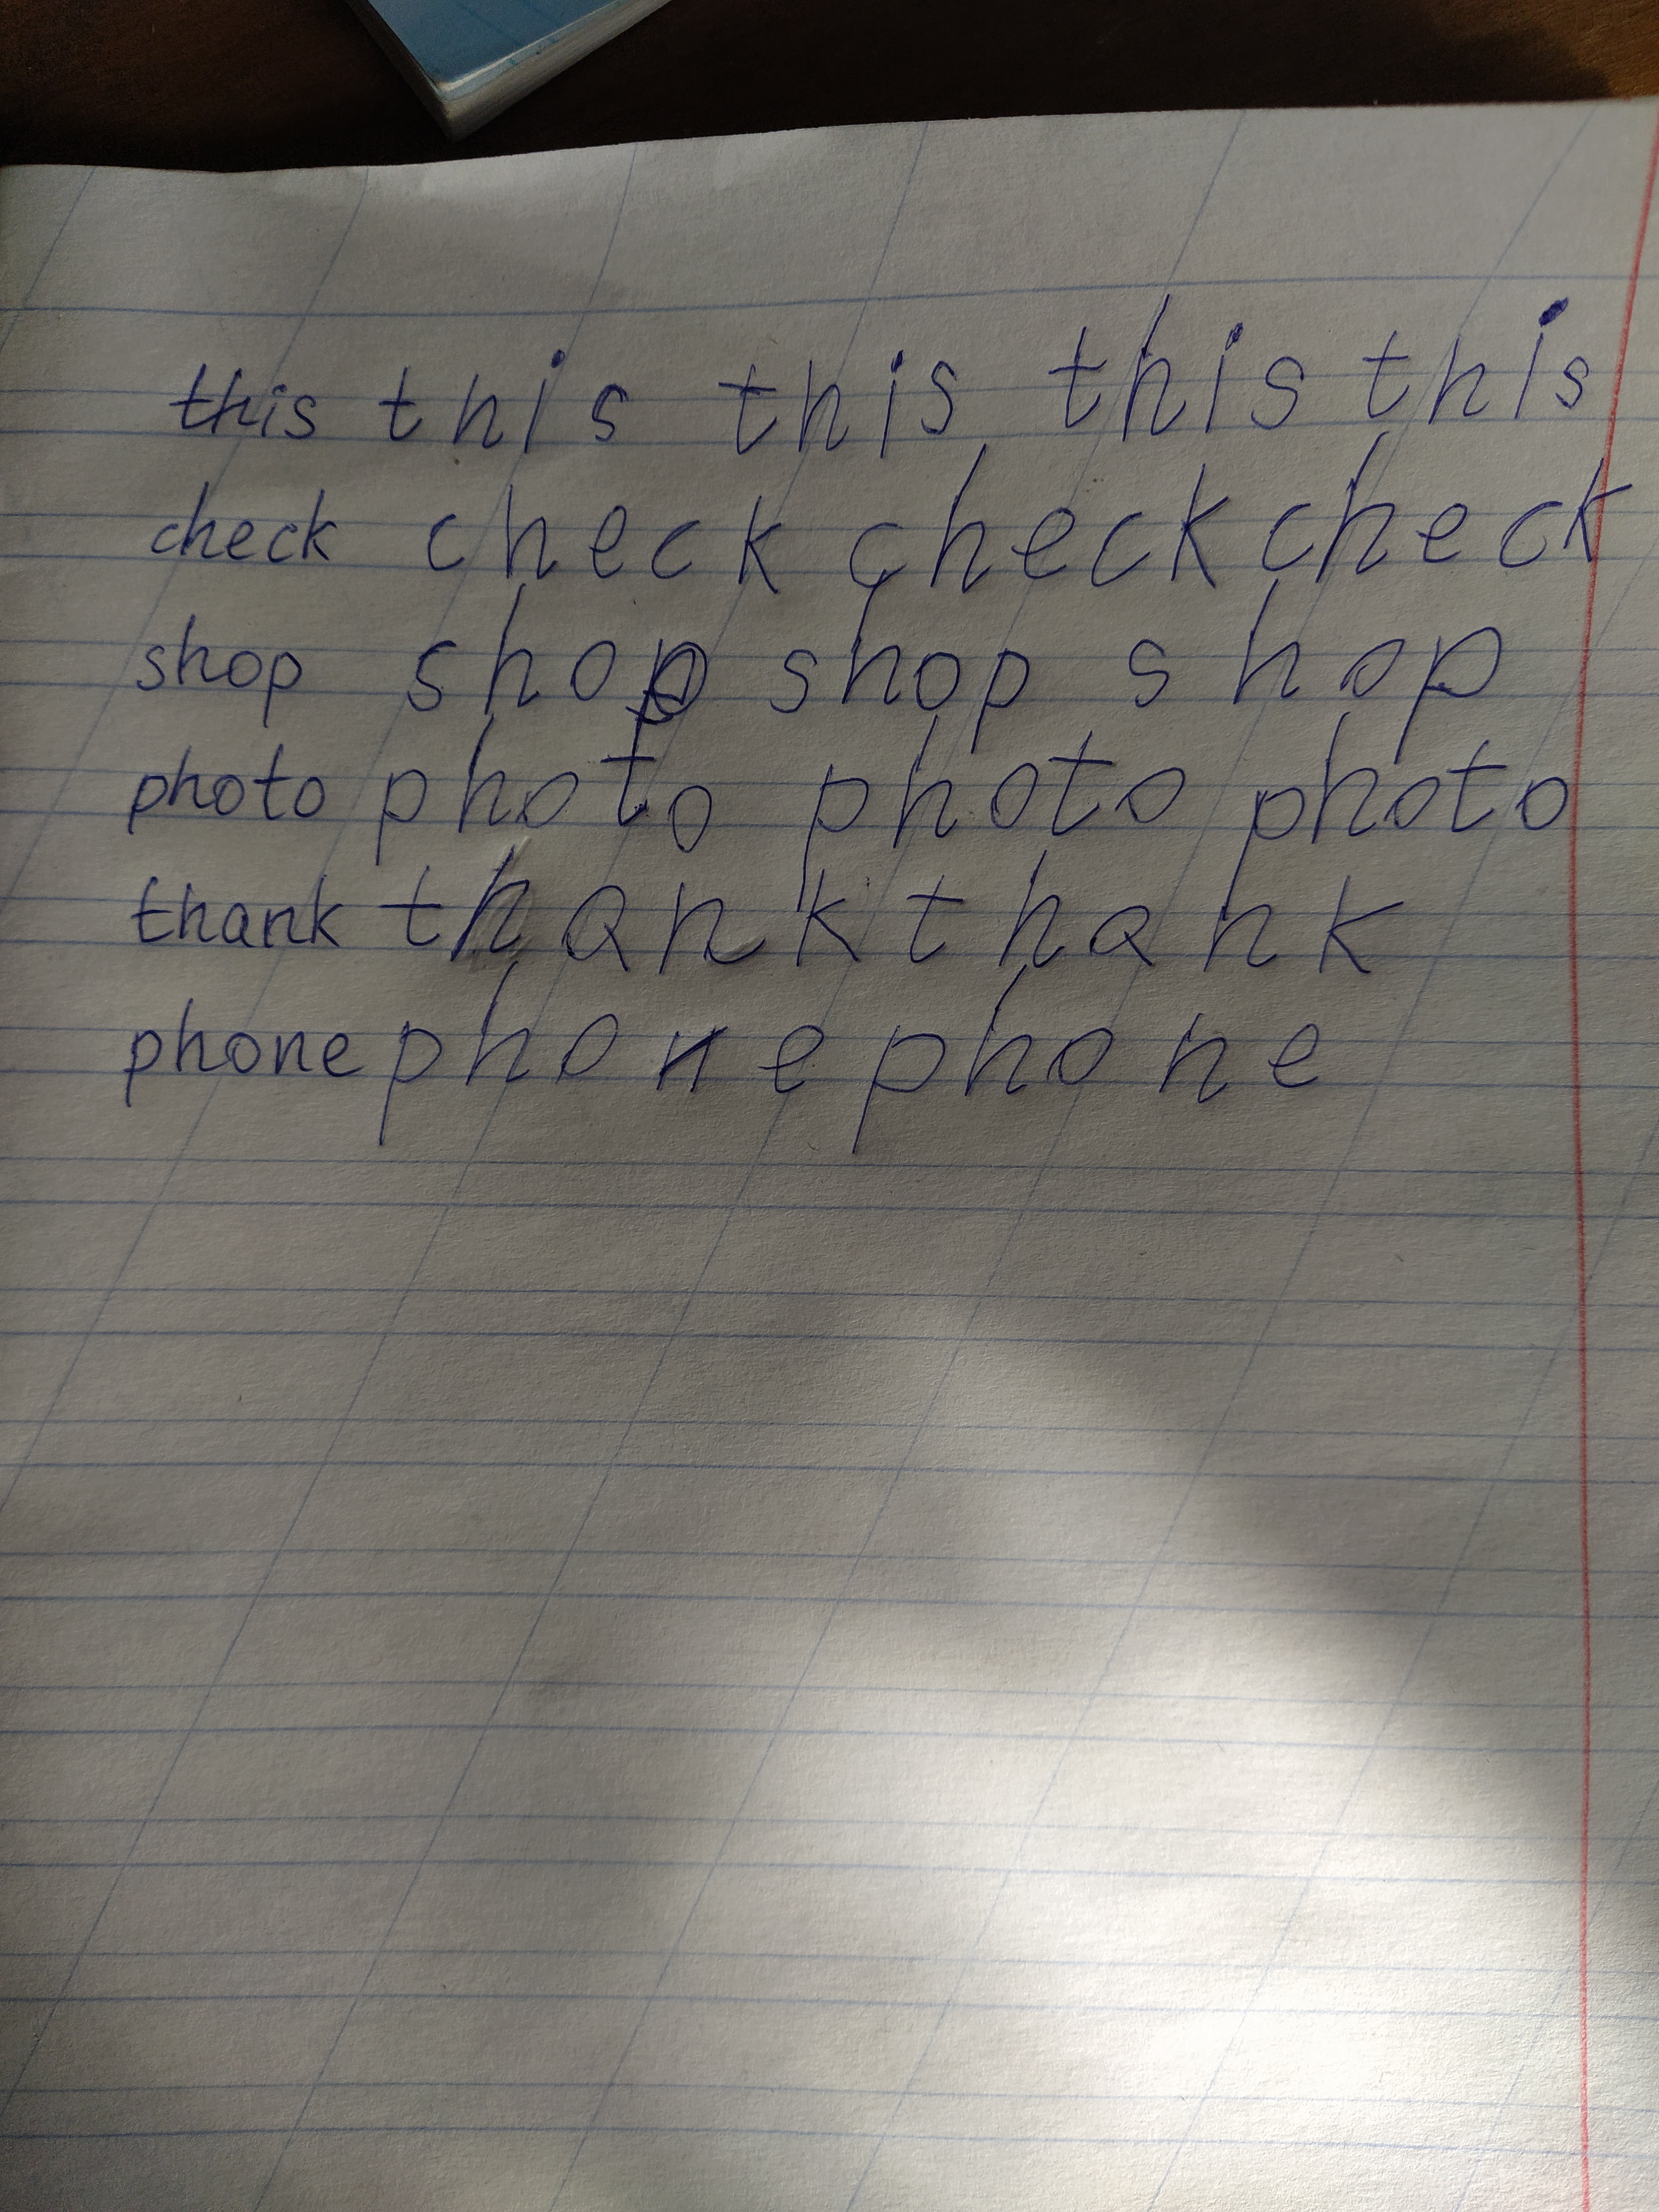 this this this this this
check check check check
shop shop shop shop
photo photo photo photo
thank thank thank
phone phone phone